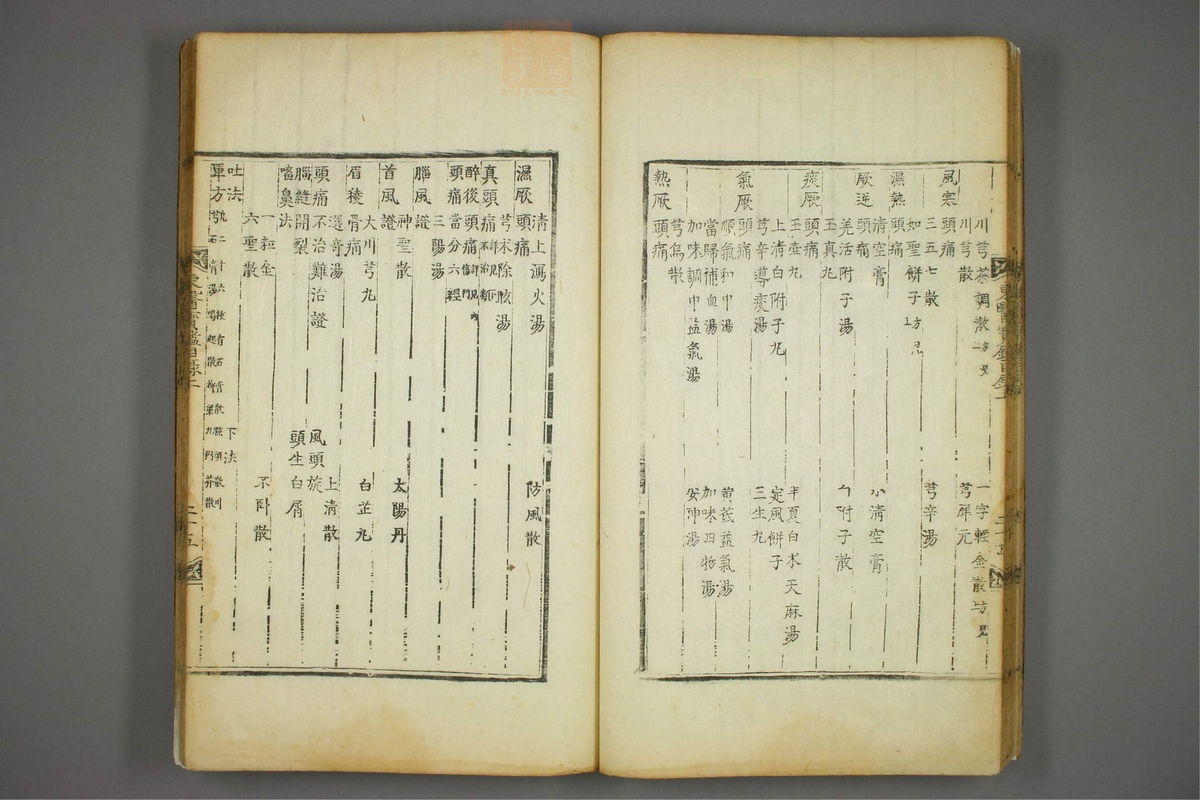 川芎茶調散方見上 一字輕金散方見上
川芎散 芎犀元
風寒頭痛
三五七散 芎辛湯
如聖餠子方見上
濕熱頭痛
淸空膏 小淸空膏
厥逆頭痛
羌活附子湯 附子散
玉眞丸
痰厥頭痛
玉壺丸 半夏白朮天麻湯
上淸白附子丸 定風餠子
芎辛導痰湯 三生丸
氣厥頭痛
順氣和中湯 黃芪益氣湯
當歸補血湯 加味四物湯
加味調中益氣湯 安神湯
熱厥頭痛
芎烏散
淸上瀉火湯 防風散
濕厥頭痛
芎朮除眩湯
眞頭痛
醉後頭痛
頭痛當分六經
三陽湯
腦風證
神聖散 太陽丹
首風證
大川芎丸 白芷丸
眉稜骨痛
選奇湯 上淸散
頭痛不治難治證 風頭旋
腦縫開裂 頭生白屑
一粒金 不卧散
㗜鼻法
六聖散
吐法 下法
單方
東醫寶鑑目錄上
二十五